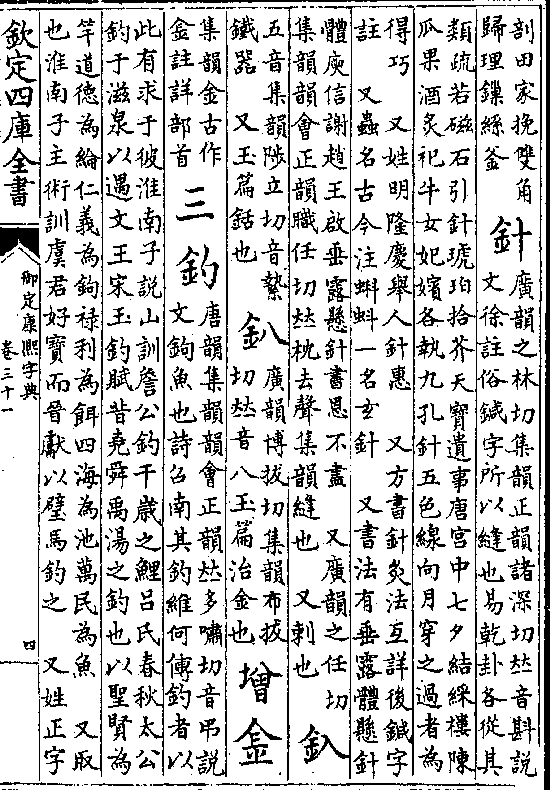 剖田家挽雙角
歸理鏁絲釜
針
廣韻之林切集韻正韻諸深切𠀤音斟說
文徐註俗鍼字所以縫也易乾卦各從其
類疏若磁石引針琥珀拾芥天寶遺事唐宮中七夕結綵樓陳
瓜果酒炙祀牛女妃嬪各執九孔針五色線向月穿之過者為
得巧　又姓明隆慶舉人針惠　又方書針灸法互詳後鍼字
註　又蟲名古今注蝌蚪一名玄針　又書法有垂露體懸針
體庾信謝趙王啟垂露懸針書恩不盡　又廣韻之任切
集韻韻會正韻職任切𠀤枕去聲集韻縫也　又刺也
五音集韻陟立切音縶
鐵器　又玉篇銛也
釟
廣韻博拔切集韻布拔
切𠀤音八玉篇治金也
增
集韻金古作
金註詳部首
三
釣
唐韻集韻韻會正韻𠀤多嘯切音弔說
文鉤魚也詩召南其釣維何傳釣者以
此有求于彼淮南子說山訓詹公釣千歲之鯉呂氏春秋太公
釣于滋泉以遇文王宋玉釣賦昔堯舜禹湯之釣也以聖賢為
竿道德為綸仁義為鉤祿利為餌四海為池萬民為魚　又取
也淮南子主術訓虞君好寶而晉獻以璧馬釣之　又姓正字
欽定四庫全書
御定康熙字典
卷三十一
四